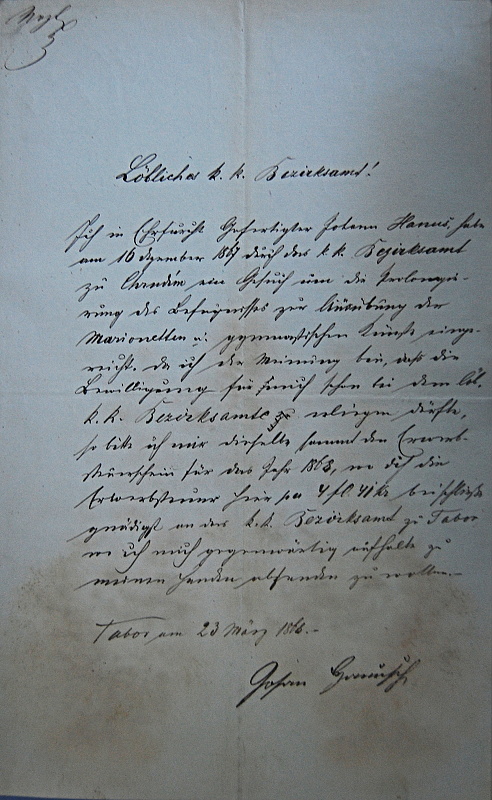 Löbliches k. k. Bezirksamt!
Ich in Ehrfurcht Gefertigter Johann Hanus, habe
am 16 Dzember 1867 durch das k k. Bezirksamt
zu Chrudim ein Gesuch um die Prolongi-
rung des Befugnisses zur Ausübung der
Marionetten u. gymnastischen Künste einge-
reicht, da ich der Meinung bin, daß die
Bewilligung für mich schon bei dem löb.
k. k. Bezirksamte erliegen dürfte,
so bitte ich mir dieselbe sammt den Erwerb-
steuerschein für das Jahr 1868, wo ich die
Erwerbsteuer hier pr 4 fl. 41 kr beischließe
gnädigst an das k. k. Bezirksamt zu Tabor
wo ich mich gegenwärtig aufhalte zu
meinen Handen absenden zu wollen.-
Tabor am 23 März 1868.-
Johan Hanusch